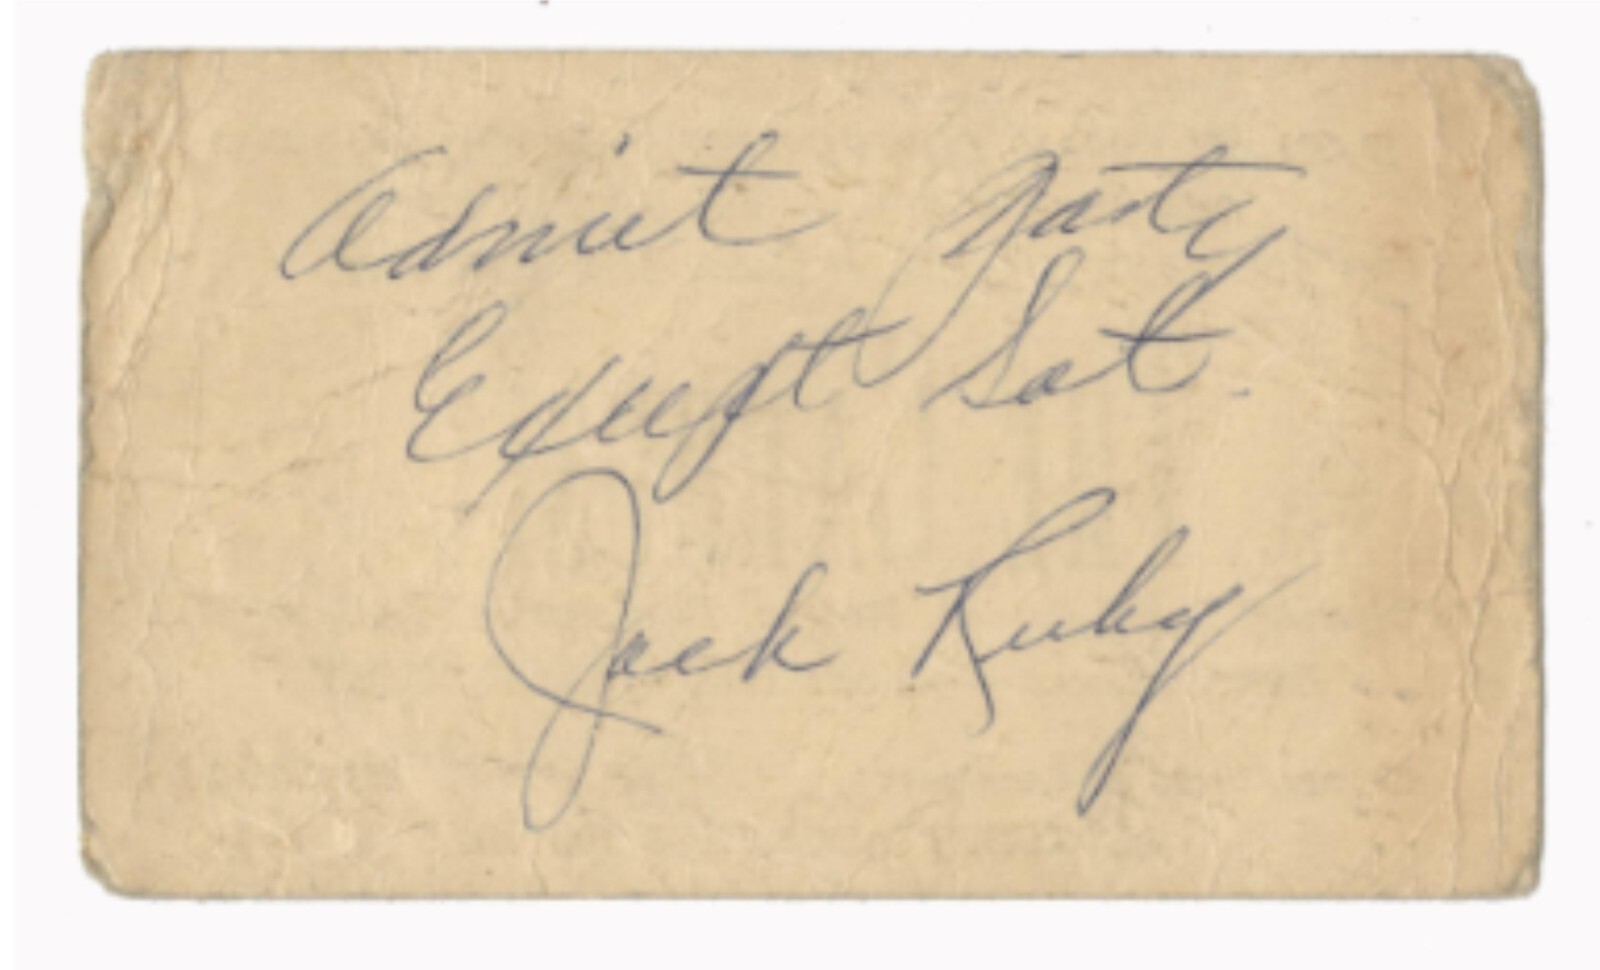 Admit Party
Except Sat.
Jack Ruby